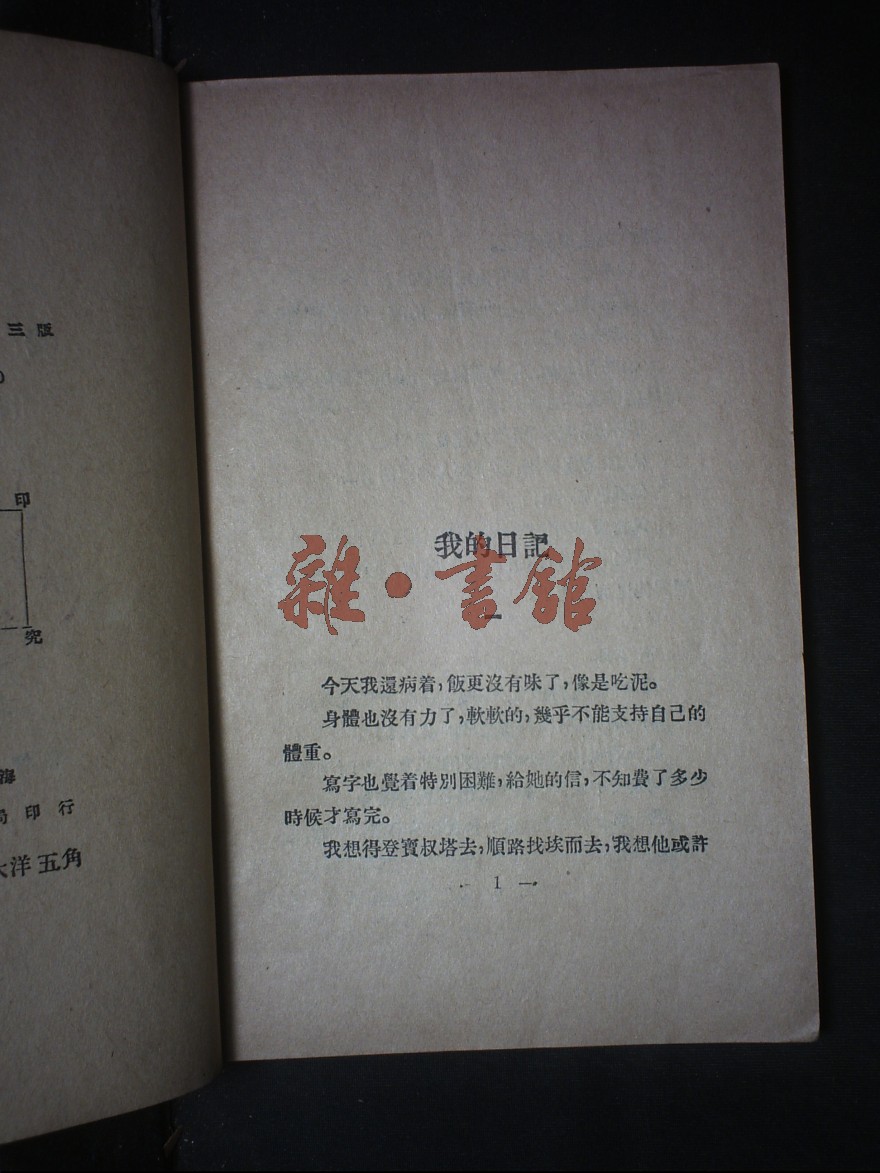 三版
印
究
海
局印行
大洋五角
我的日記
雜·書舘
一
今天我還病着，飯更沒有味了，像是吃泥。
身體也沒有力了，軟軟的，幾乎不能支持自己的
體重。
寫字也覺着特別困難，給她的信，不知費了多少
時候才寫完。
我想得登寶叔塔去，順路找埃而去，我想他或許
— 1 —